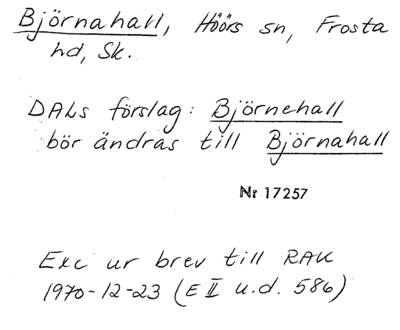 Björnahall, Höörs sn, Frosta
hd, Sk.
DALs förslag: Björnehall
bör ändras till Björnahall
Nr 17257
Exc ur brev till RAK
1970-12-23 (E II u.d. 586)